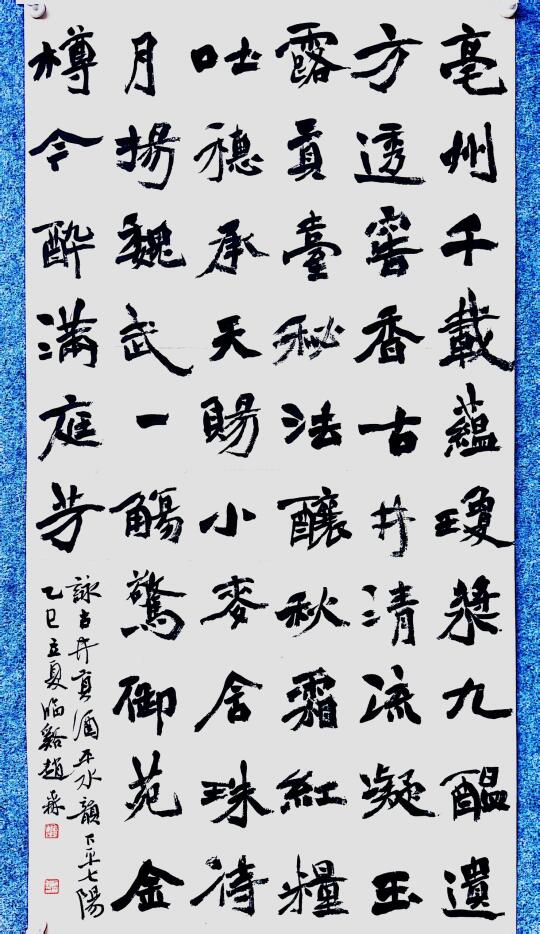 亳州千載蘊瓊漿九醞遺
方透窖香古井清流凝玉
露貢臺秘法釀秋霜紅糧
吐穗承天賜小麥含珠待
月揚魏武一觴驚御苑金
樽今醉滿庭芳
詠古井貢酒平水韻下平七陽
乙巳立夏临谿趙森